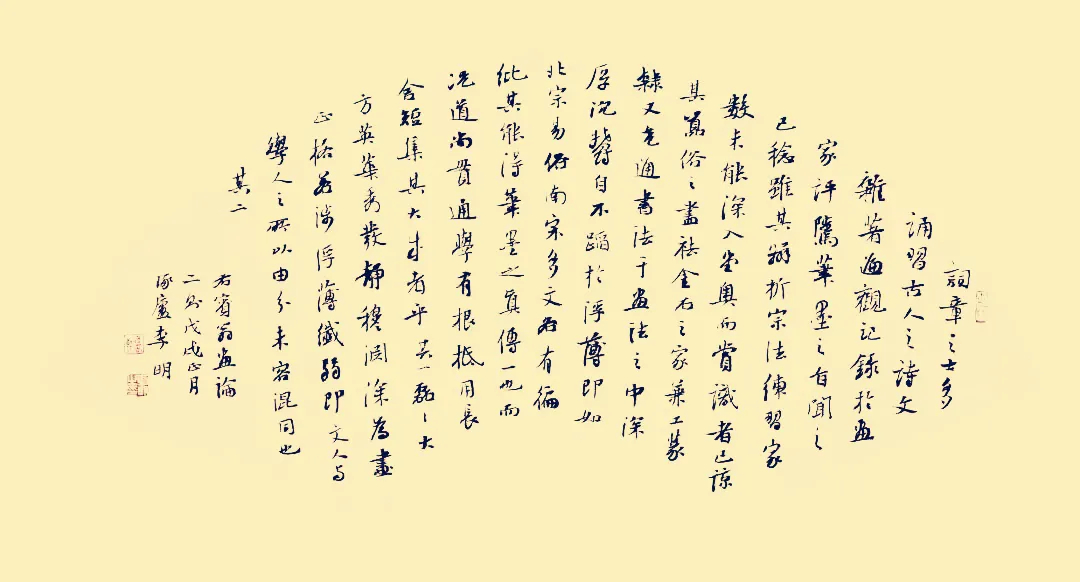 詞章之士多
誦習古人之詩文
雜著遍觀記錄於畫
家評騭筆墨之旨聞之
已稔雖其辨析宗法練習家
數未能深入堂奧而賞識者已諒
其俗之盡祛金石之家兼工篆
隸又克通書法于畫法之中深
厚沉鬱自不蹈於浮薄即如
北宗易俗南宗多文各有偏
紕其能得筆墨之真傳一也而
況道尚貫通學有根柢用長
舍短集其大成者乎其一磊々大
方英華秀發靜穆淵深為畫
正格若涉浮薄纖弱即文人与
學人之所以由分未容混同也
其二
右賓翁畫論
二則戊戌正月
琢廬李明